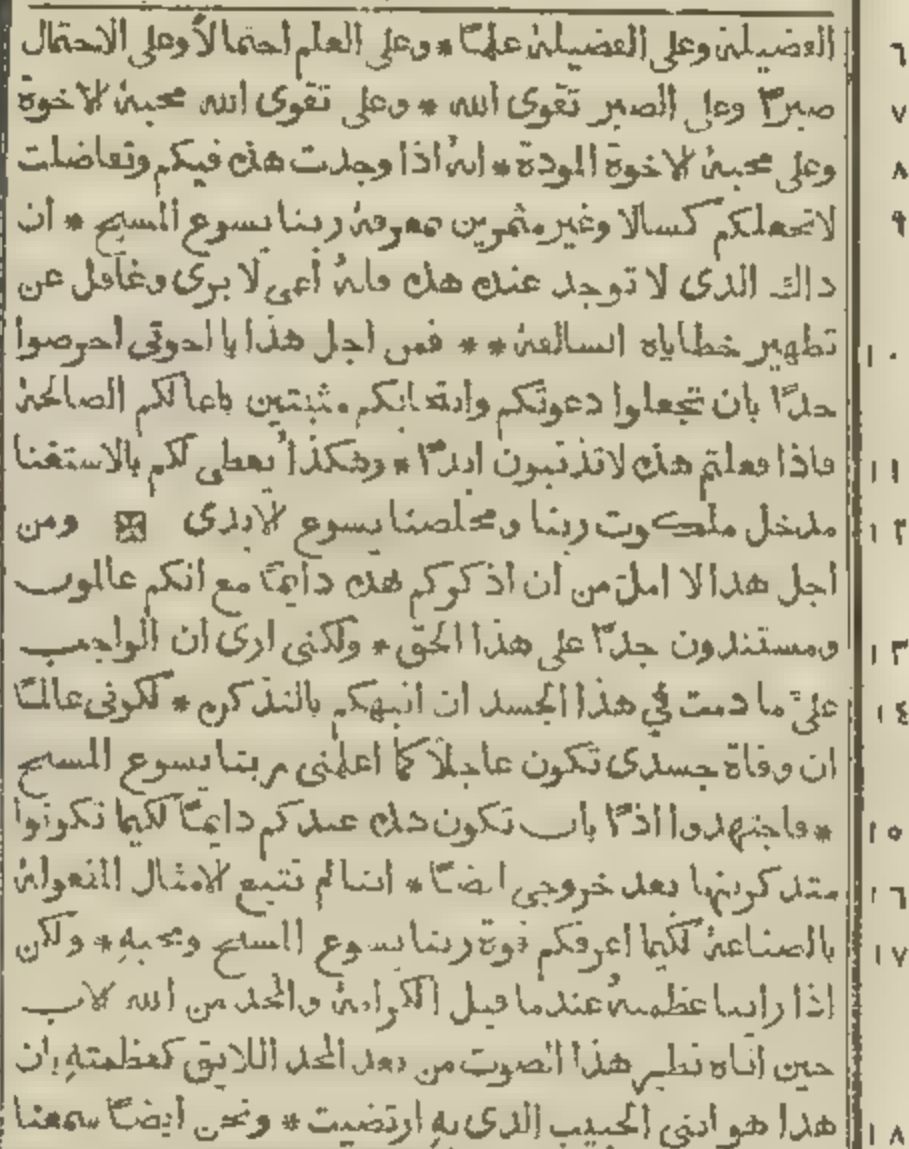 الفضيلة وعلى الفضيلة علمًا * وعلى العلم احتمالاً وعلى الاحتمال ٦
صبرًا وعلى الصبر تقوى الله * وعلى تقوى الله محبة الاخوة ٧
وعلى محبة الاخوة المودة * انه اذا وجدت هذه فيكم وتفاضلت ٨
لا تجعلكم كسالا وغير مثمرين بمعرفة ربنا يسوع المسيح * ان ٩
داك الذى لا توجد عنده هذه فانه اعمى لا يرى وغافل عن
تطهير خطاياه السالفة * * فمن اجل هذا يا اخوتى احرصوا ١٠
جدًّا بان تجعلوا دعوتكم وانتخابكم مثبتين باعمالكم الصالحة
فاذا فعلتم هذه لا تذنبون ابدًا * وهكذا يعطى لكم بالاستغنا ١١
مدخل ملكوت ربنا ومخلصنا يسوع الابدى ومن ١٢
اجل هذا لا امل من ان اذكركم هذه دايمًا مع انكم عالمون
ومستندون جدًّا على هذا الحق * ولكنى ارى ان الواجب ١٣
علىّ ما دمت في هذا الجسد ان انبهكم بالتذكرة * لكونى عالمًا ١٤
ان وفاة جسدى تكون عاجلاً كما اعلمنى ربنا يسوع المسيح
* فاجتهدوا اذًا بان تكون هذه عندكم دايمًا لكيما تكونوا ١٥
متذكرينها بعد خروجى ايضًا * اننا لم نتبع الامثال المعمولة ١٦
بالصناعة لكيما اعرفكم قوة ربنا يسوع المسيح ومجيه * ولكن ١٧
اذا راينا عظمته عندما قبل الكرامة والمجد من الله الاب
حين اتاه نظير هذا الصوت من بعد المجد اللايق كعظمته بان
هذا هو ابنى الحبيب الذى به ارتضيت * ونحن ايضًا سمعنا ١٨